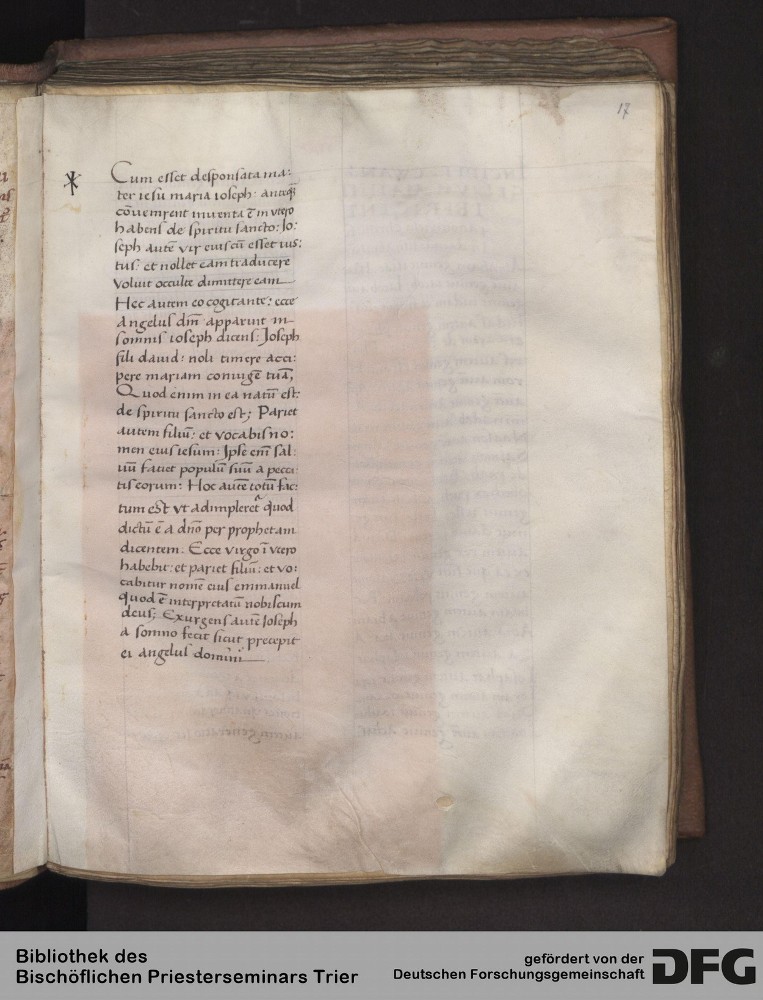 17
Cum esset desponsata ma:
ter iesu maria ioseph: anteq̄
cōuenirent inuenta ē in vtero
habens de spiritu sancto: Io:
seph autē vir eius cū esset ius:
tus: et nollet eam traducere
voluit occulte dimittere eam
Hec autem eo cogitante: ecce
Angelus dn̄i apparuit in
somnis ioseph dicens: Ioseph
fili dauid: noli timere acci:
pere mariam coniugē tuā;
Quod enim in ea natū est:
de spiritu sancto est; Pariet
autem filiū: et vocabis no:
men eius iesum: Ipse eni᷒ sal:
uū faciet populū suū a pecca:
tis eorum: Hoc autē totū fac:
tum est vt adimpleret᷑ quod
dictū ē a dn̄o per prophetam
dicentem: Ecce virgo ī vtero
habebit: et pariet filiū: et vo:
cabitur nomē eius emmanuel
quod ē interpretatū nobiscum
deus; Exurgens autē Ioseph
a somno fecit sicut precepit
ei angelus domini
Bibliothek des
Bischöflichen Priesterseminars Trier
gefördert von der
Deutschen Forschungsgemeinschaft
DFG